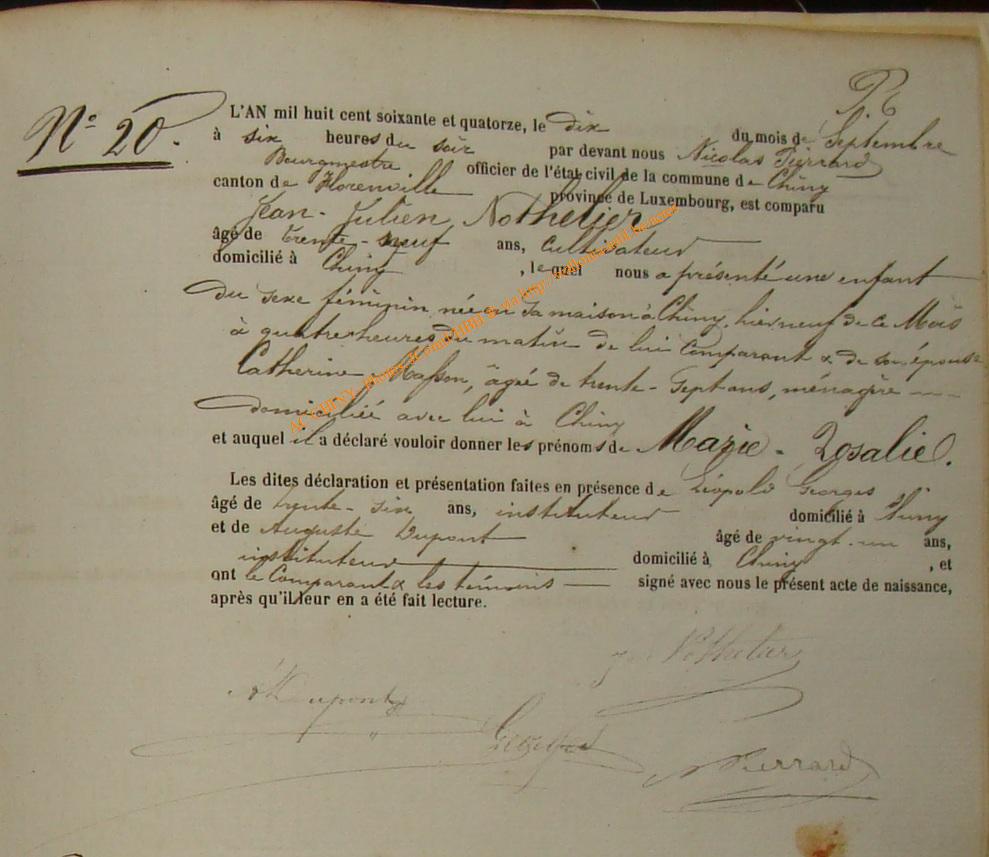 N° 20.
L'AN mil huit cent soixante et quatorze, le dix du mois de Septembre
à six heures du soir par devant nous Nicolas Pierrard
Bourgmestre officier de l'état civil de la commune de Chiny
canton de Florenville province de Luxembourg, est comparu
Jean-Julien Nothelier
âgé de trente-neuf ans, cultivateur
domicilié à Chiny, lequel nous a présenté une enfant
du sexe féminin, née en sa maison à Chiny, hier neuf de ce Mois
à quatre heures du matin de lui Comparant & de son épouse
Catherine Masson, âgée de trente-sept ans, ménagère
domiciliée avec lui à Chiny
et auquel il a déclaré vouloir donner les prénoms de Marie-Rosalie.
Les dites déclaration et présentation faites en présence de Léopold Georges
âgé de trente-six ans, instituteur domicilié à Chiny
et de Auguste Dupont âgé de vingt-un ans,
instituteur domicilié à Chiny, et
ont le Comparant & les témoins signé avec nous le présent acte de naissance,
après qu'il leur en a été fait lecture.
Nothelier
A Dupont
Georges
N Pierrard